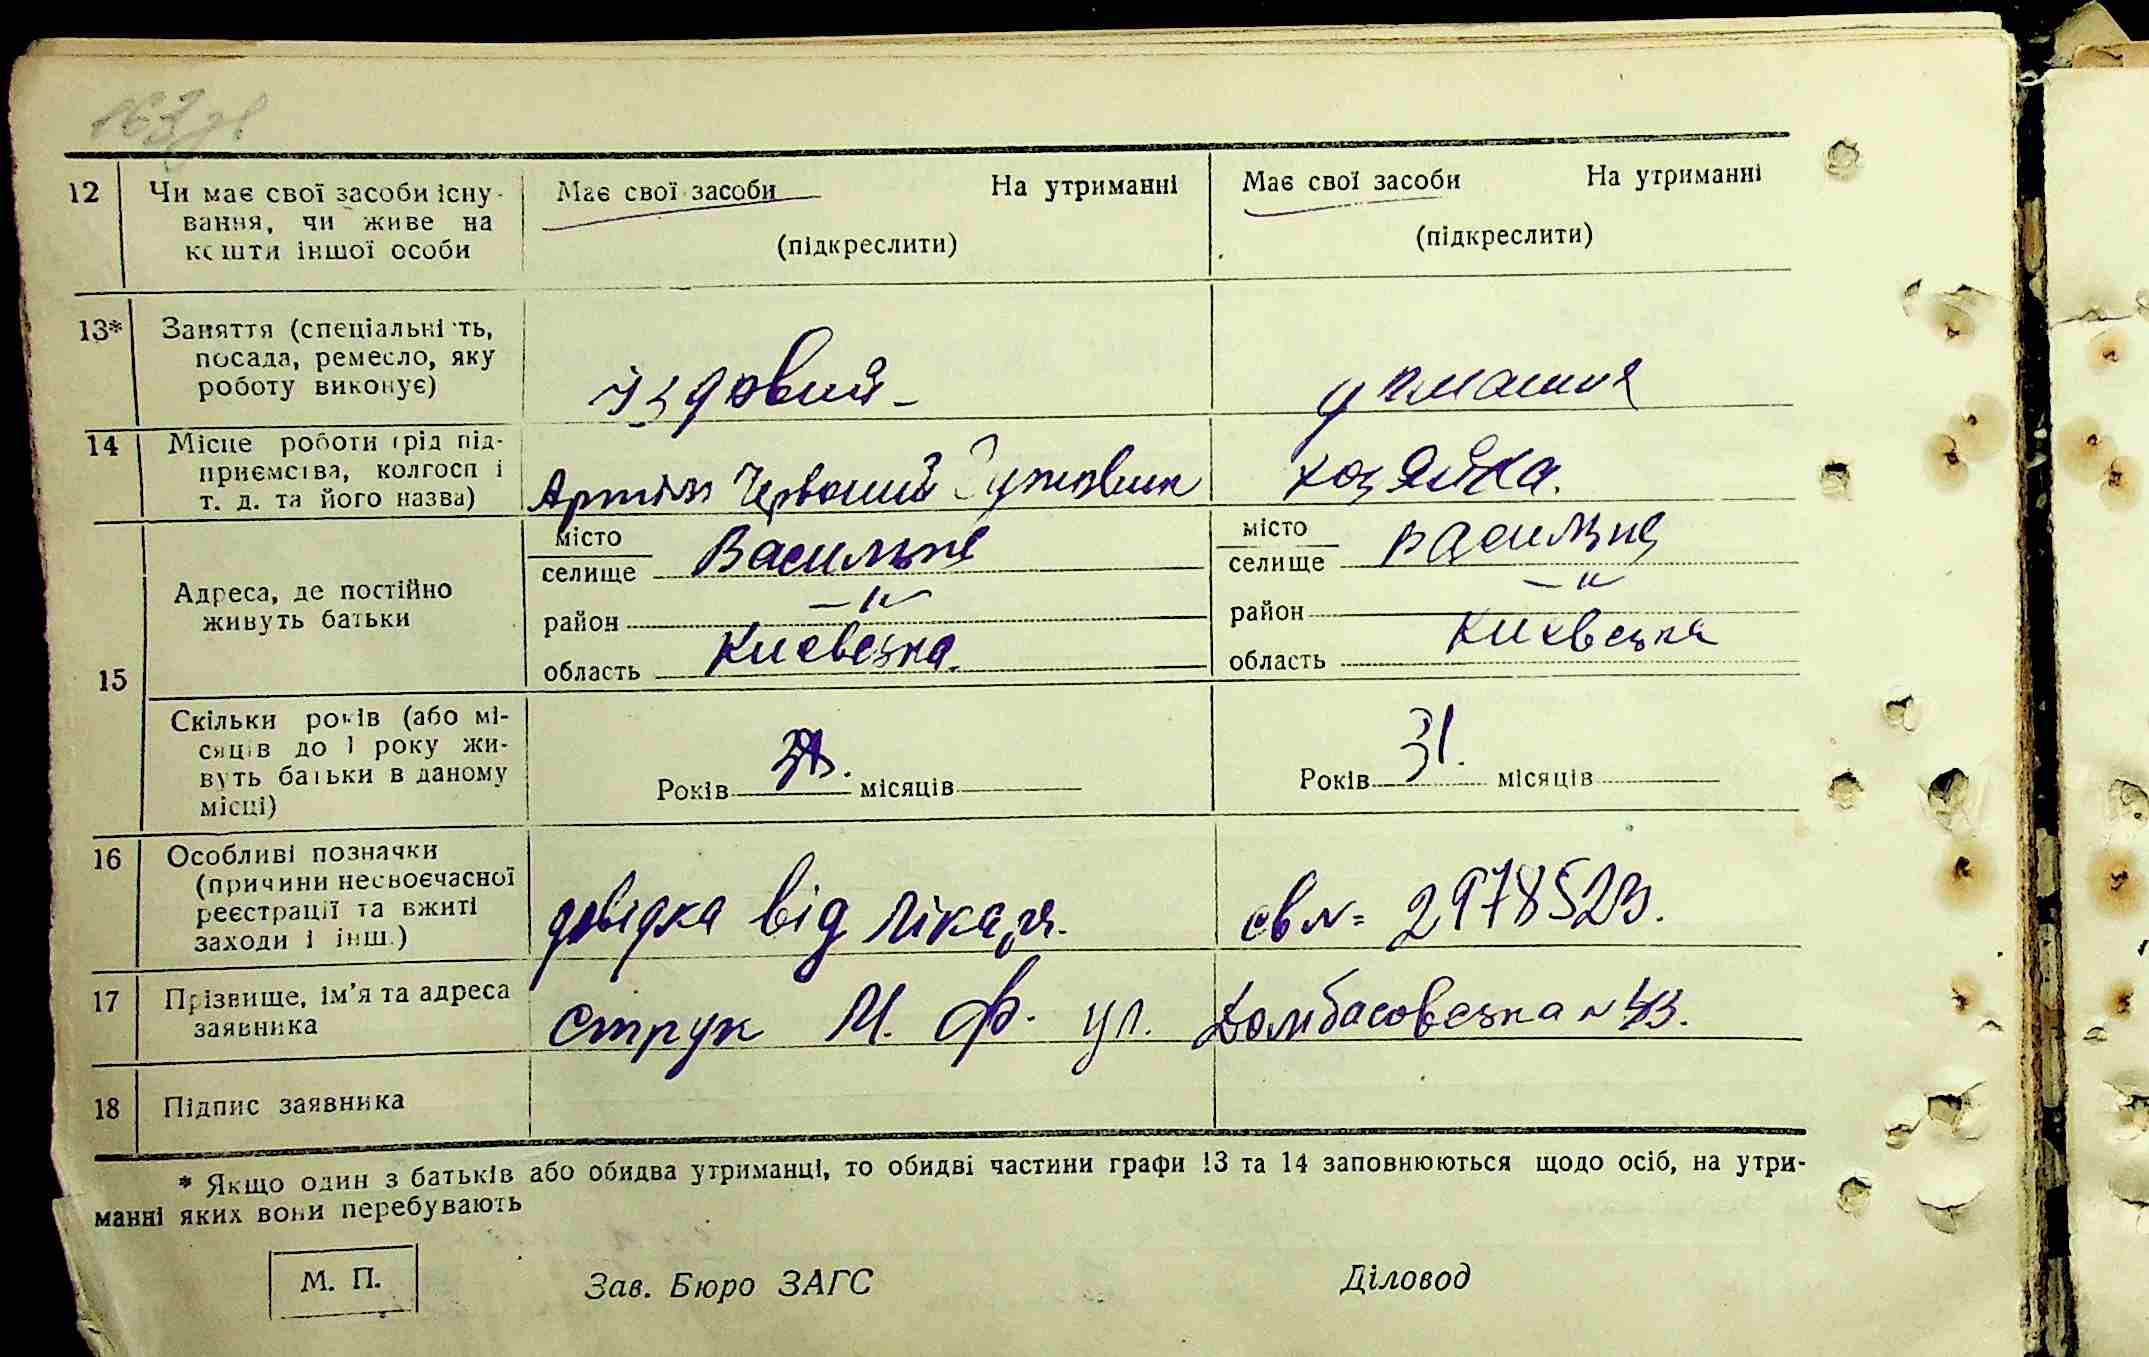 163 зв
12 Чи має свої засоби існу- Має свої засоби На утриманні Має свої засоби На утриманні
вання, чи живе на
кошти іншої особи (підкреслити) (підкреслити)
13* Заняття (спеціальність,
посада, ремесло, яку
роботу виконує) їздовий - домашня
14 Місце роботи (рід під-
приємства, колгосп і Артіль Червоний хозяйка.
т. д. та його назва)
15 Адреса, де постійно
живуть батьки
місто
селище Васильків
район —"—
область Києвська.
місто
селище Васильків
район —"—
область Києвська
Скільки років (або мі-
сяців до 1 року жи-
вуть батьки в даному
місці)
Років місяців
Років 31. місяців
16 Особливі позначки
(причини несвоєчасної
реєстрації та вжиті
заходи і інш.)
довідка від лікаря. св №= 2978523.
17 Прізвище, ім'я та адреса
заявника
Струк М. Ф. ул. Домбасовська № 43.
18 Підпис заявника
* Якщо один з батьків або обидва утриманці, то обидві частини графи 13 та 14 заповнюються щодо осіб, на утри-
манні яких вони перебувають
М. П. Зав. Бюро ЗАГС Діловод